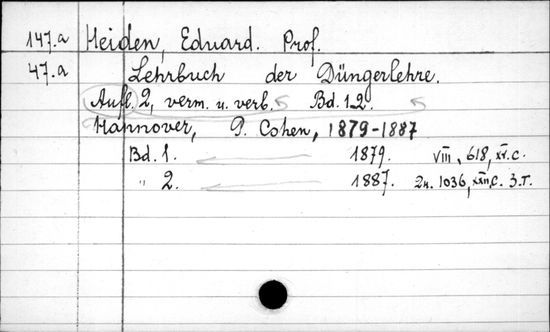 147.a Heiden, Eduard. Prof.
47.a Lehrbuch der Düngerlehre.
Aufl. 2, verm. u. verb. Bd. 1.2.
Hannover, P. Cohen, 1879-1887
Bd. 1. 1879. VIII, 618, XV. c.
" 2. 1887. 2u. 1036, XXII, c. 3.T.